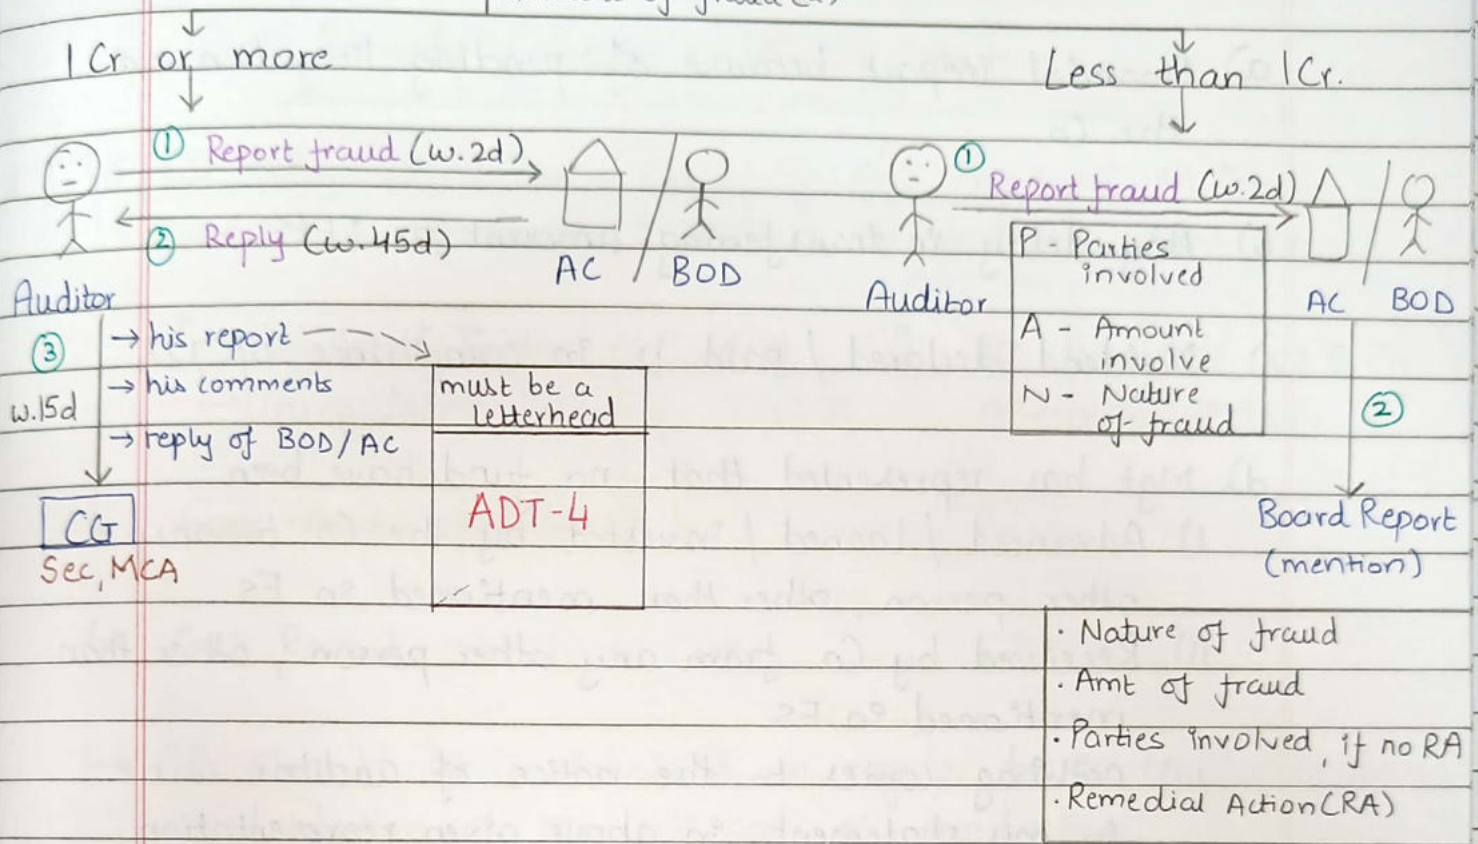 of fraud
1 Cr or more
Less than 1Cr.
① Report fraud (w.2d)
② Reply (w.45d)
AC / BOD
Auditor
③
w.15d
→ his report
→ his comments
→ reply of BOD/AC
must be a
letterhead
ADT-4
CG
Sec, MCA
①
Report fraud (w.2d)
P - Parties
involved
A - Amount
involve
N - Nature
of fraud
Auditor
AC / BOD
②
Board Report
(mention)
· Nature of fraud
· Amt of fraud
· Parties involved, if no RA
· Remedial Action (RA)